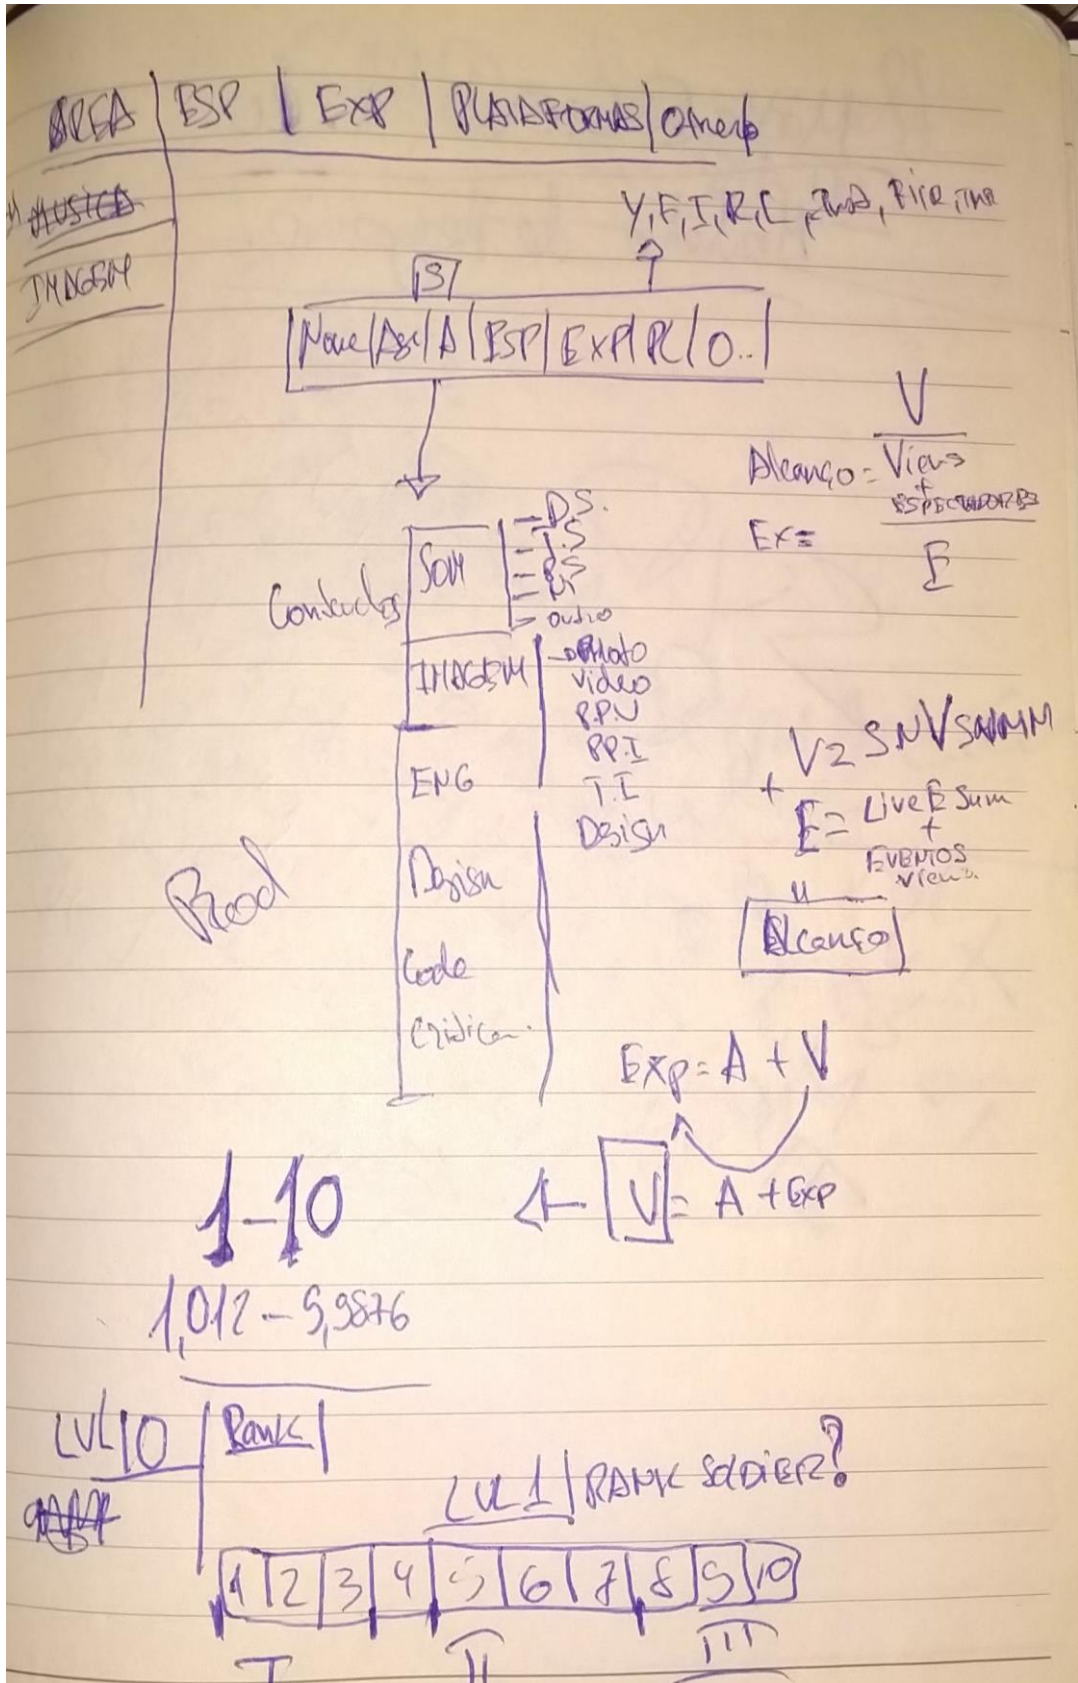 AREA | ESP | EXP | PLATAFORMAS |
MUSICA
IMAGEM
Y, F, I, R,
S
Nome | | A | ESP | EXP | PL | O..
V
Alcanço = Views
+
ESPECTADORES
Ex =
E
Conteudos
SOM
D.S.
T.S
outro
IMAGEM
Photo
Video
P.P.V
PP.I
T.I
Design
ENG
Design
Code
Prod
+ E = Live E Sum
+
EVENTOS
Views
=
Alcanço
Exp = A + V
V = A + Exp
1-10
1,012 - 9,9876
LVL 10 | Rank |
LVL 1 | RANK SOLDIER?
1 | 2 | 3 | 4 | 5 | 6 | 7 | 8 | 9 | 10
I II III